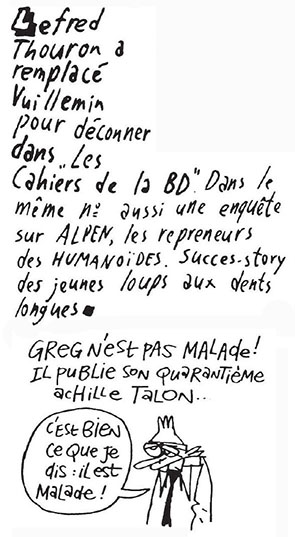 Lefred
Thouron a
remplacé
Vuillemin
pour déconner
dans "Les
Cahiers de la BD". Dans le
même n° aussi une enquête
sur ALPEN, les repreneurs
des HUMANOÏDES. Succes-story
des jeunes loups aux dents
longues
GREG N'EST PAS MALADE!
IL PUBLIE SON QUARANTIÈME
ACHILLE TALON..
C'EST BIEN
CE QUE JE
DIS : IL EST
MALADE!